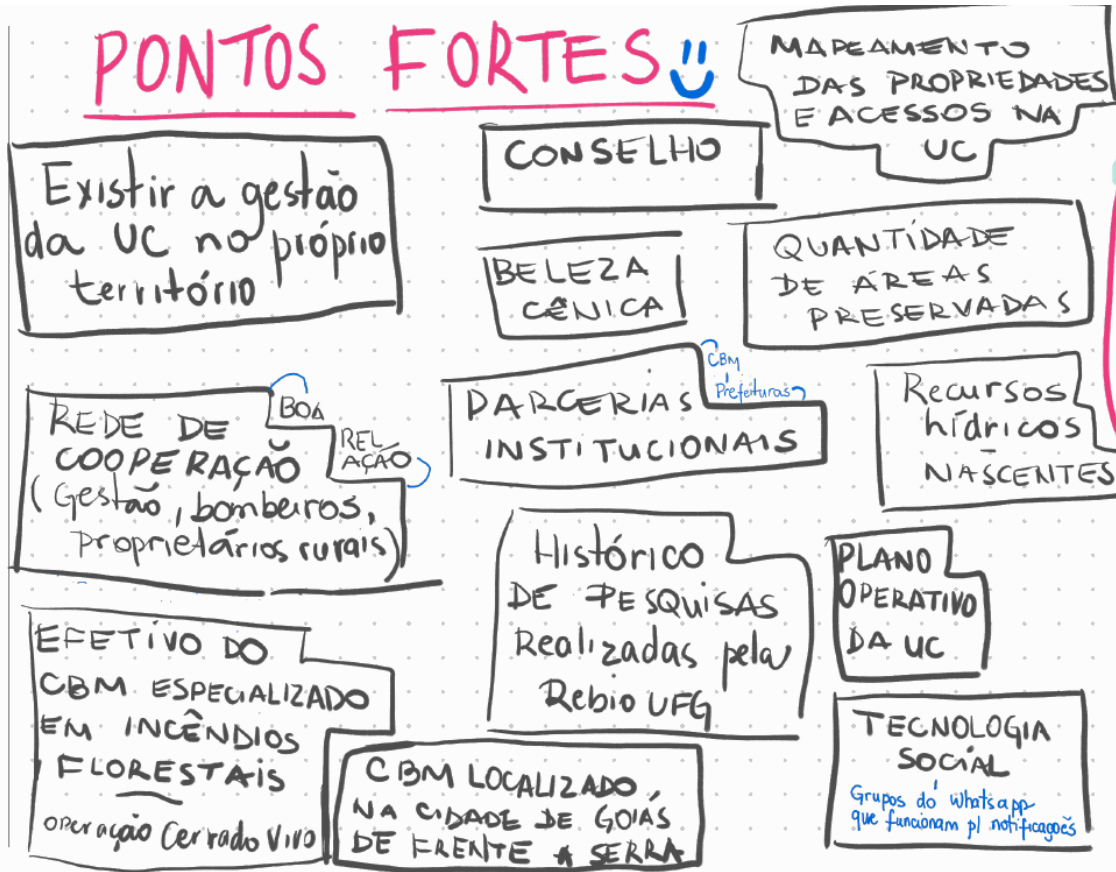 PONTOS FORTES
MAPEAMENTO
DAS PROPRIEDADES
E ACESSOS NA
UC
Existir a gestão
da UC no próprio
território
CONSELHO
BELEZA
CÊNICA
QUANTIDADE
DE ÁREAS
PRESERVADAS
REDE DE
COOPERAÇÃO
(Gestão, bombeiros,
proprietários rurais)
BOA
REL
AÇÃO
PARCERIAS
INSTITUCIONAIS
CBM
Prefeituras
Recursos
hídricos
NASCENTES
Histórico
DE PESQUISAS
Realizadas pela
Rebio UFG
PLANO
OPERATIVO
DA UC
EFETIVO DO
CBM ESPECIALIZADO
EM INCÊNDIOS
FLORESTAIS
operação Cerrado Vivo
CBM LOCALIZADO
NA CIDADE DE GOIÁS
DE FRENTE A SERRA
TECNOLOGIA
SOCIAL
Grupos do Whatsapp
que funcionam p/ notificações